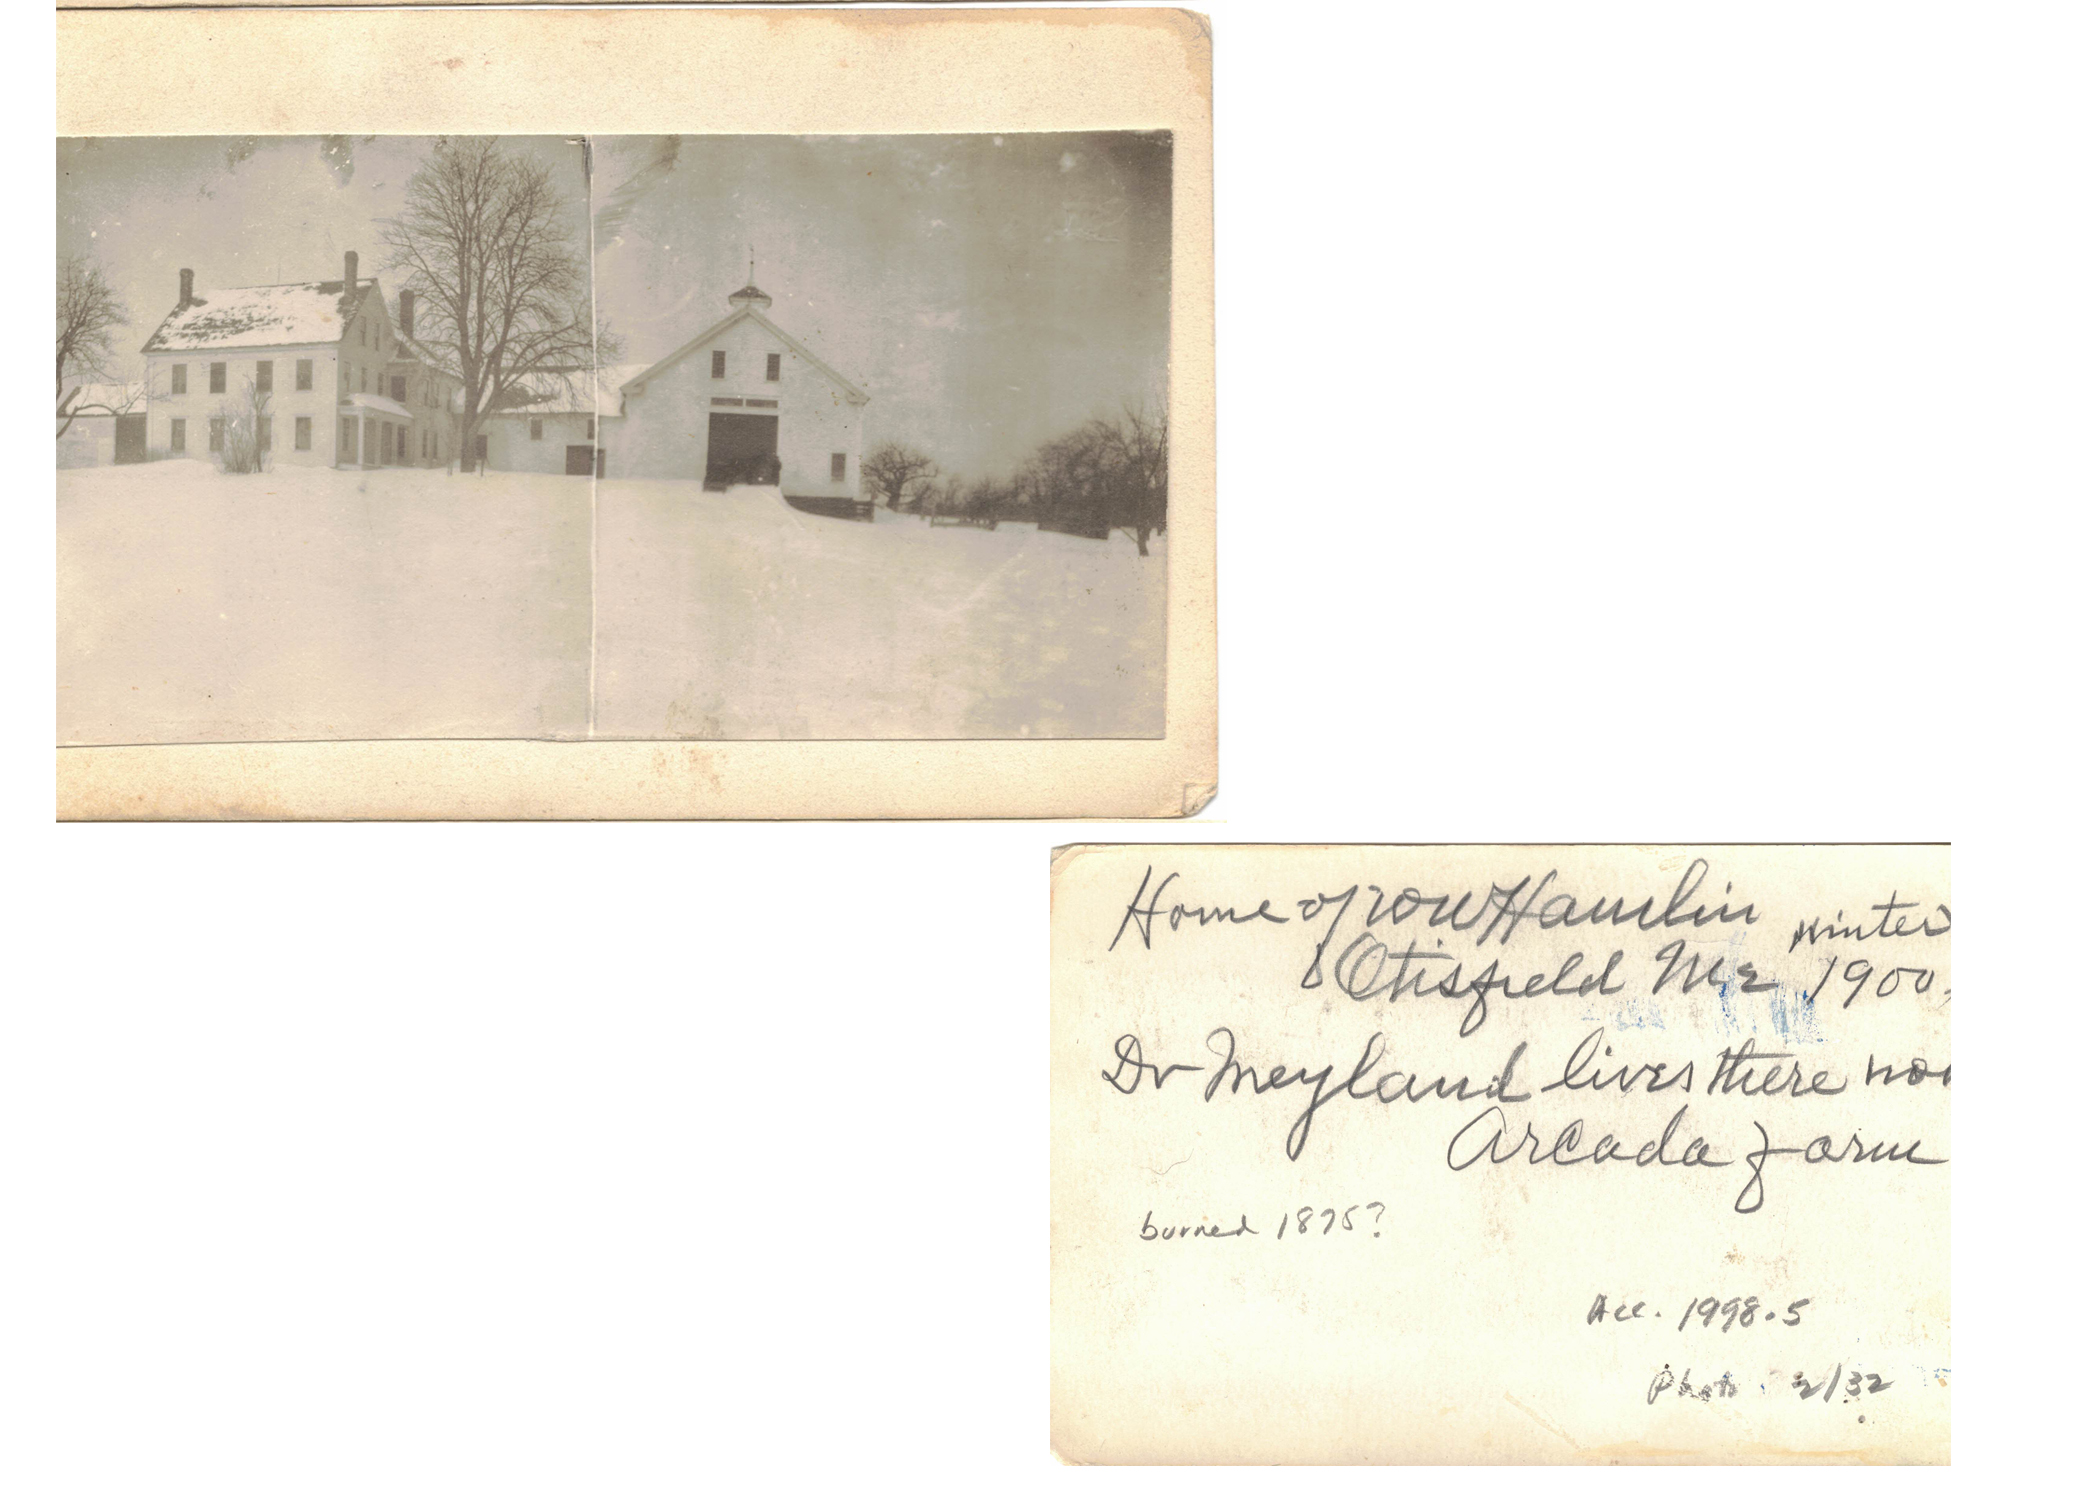 Home of Hamlin winter
Otisfield Me 1900.
Dr Meyland lives there now
Arcada farm
burned 1875?
Acc. 1998.5
Photo 2/32